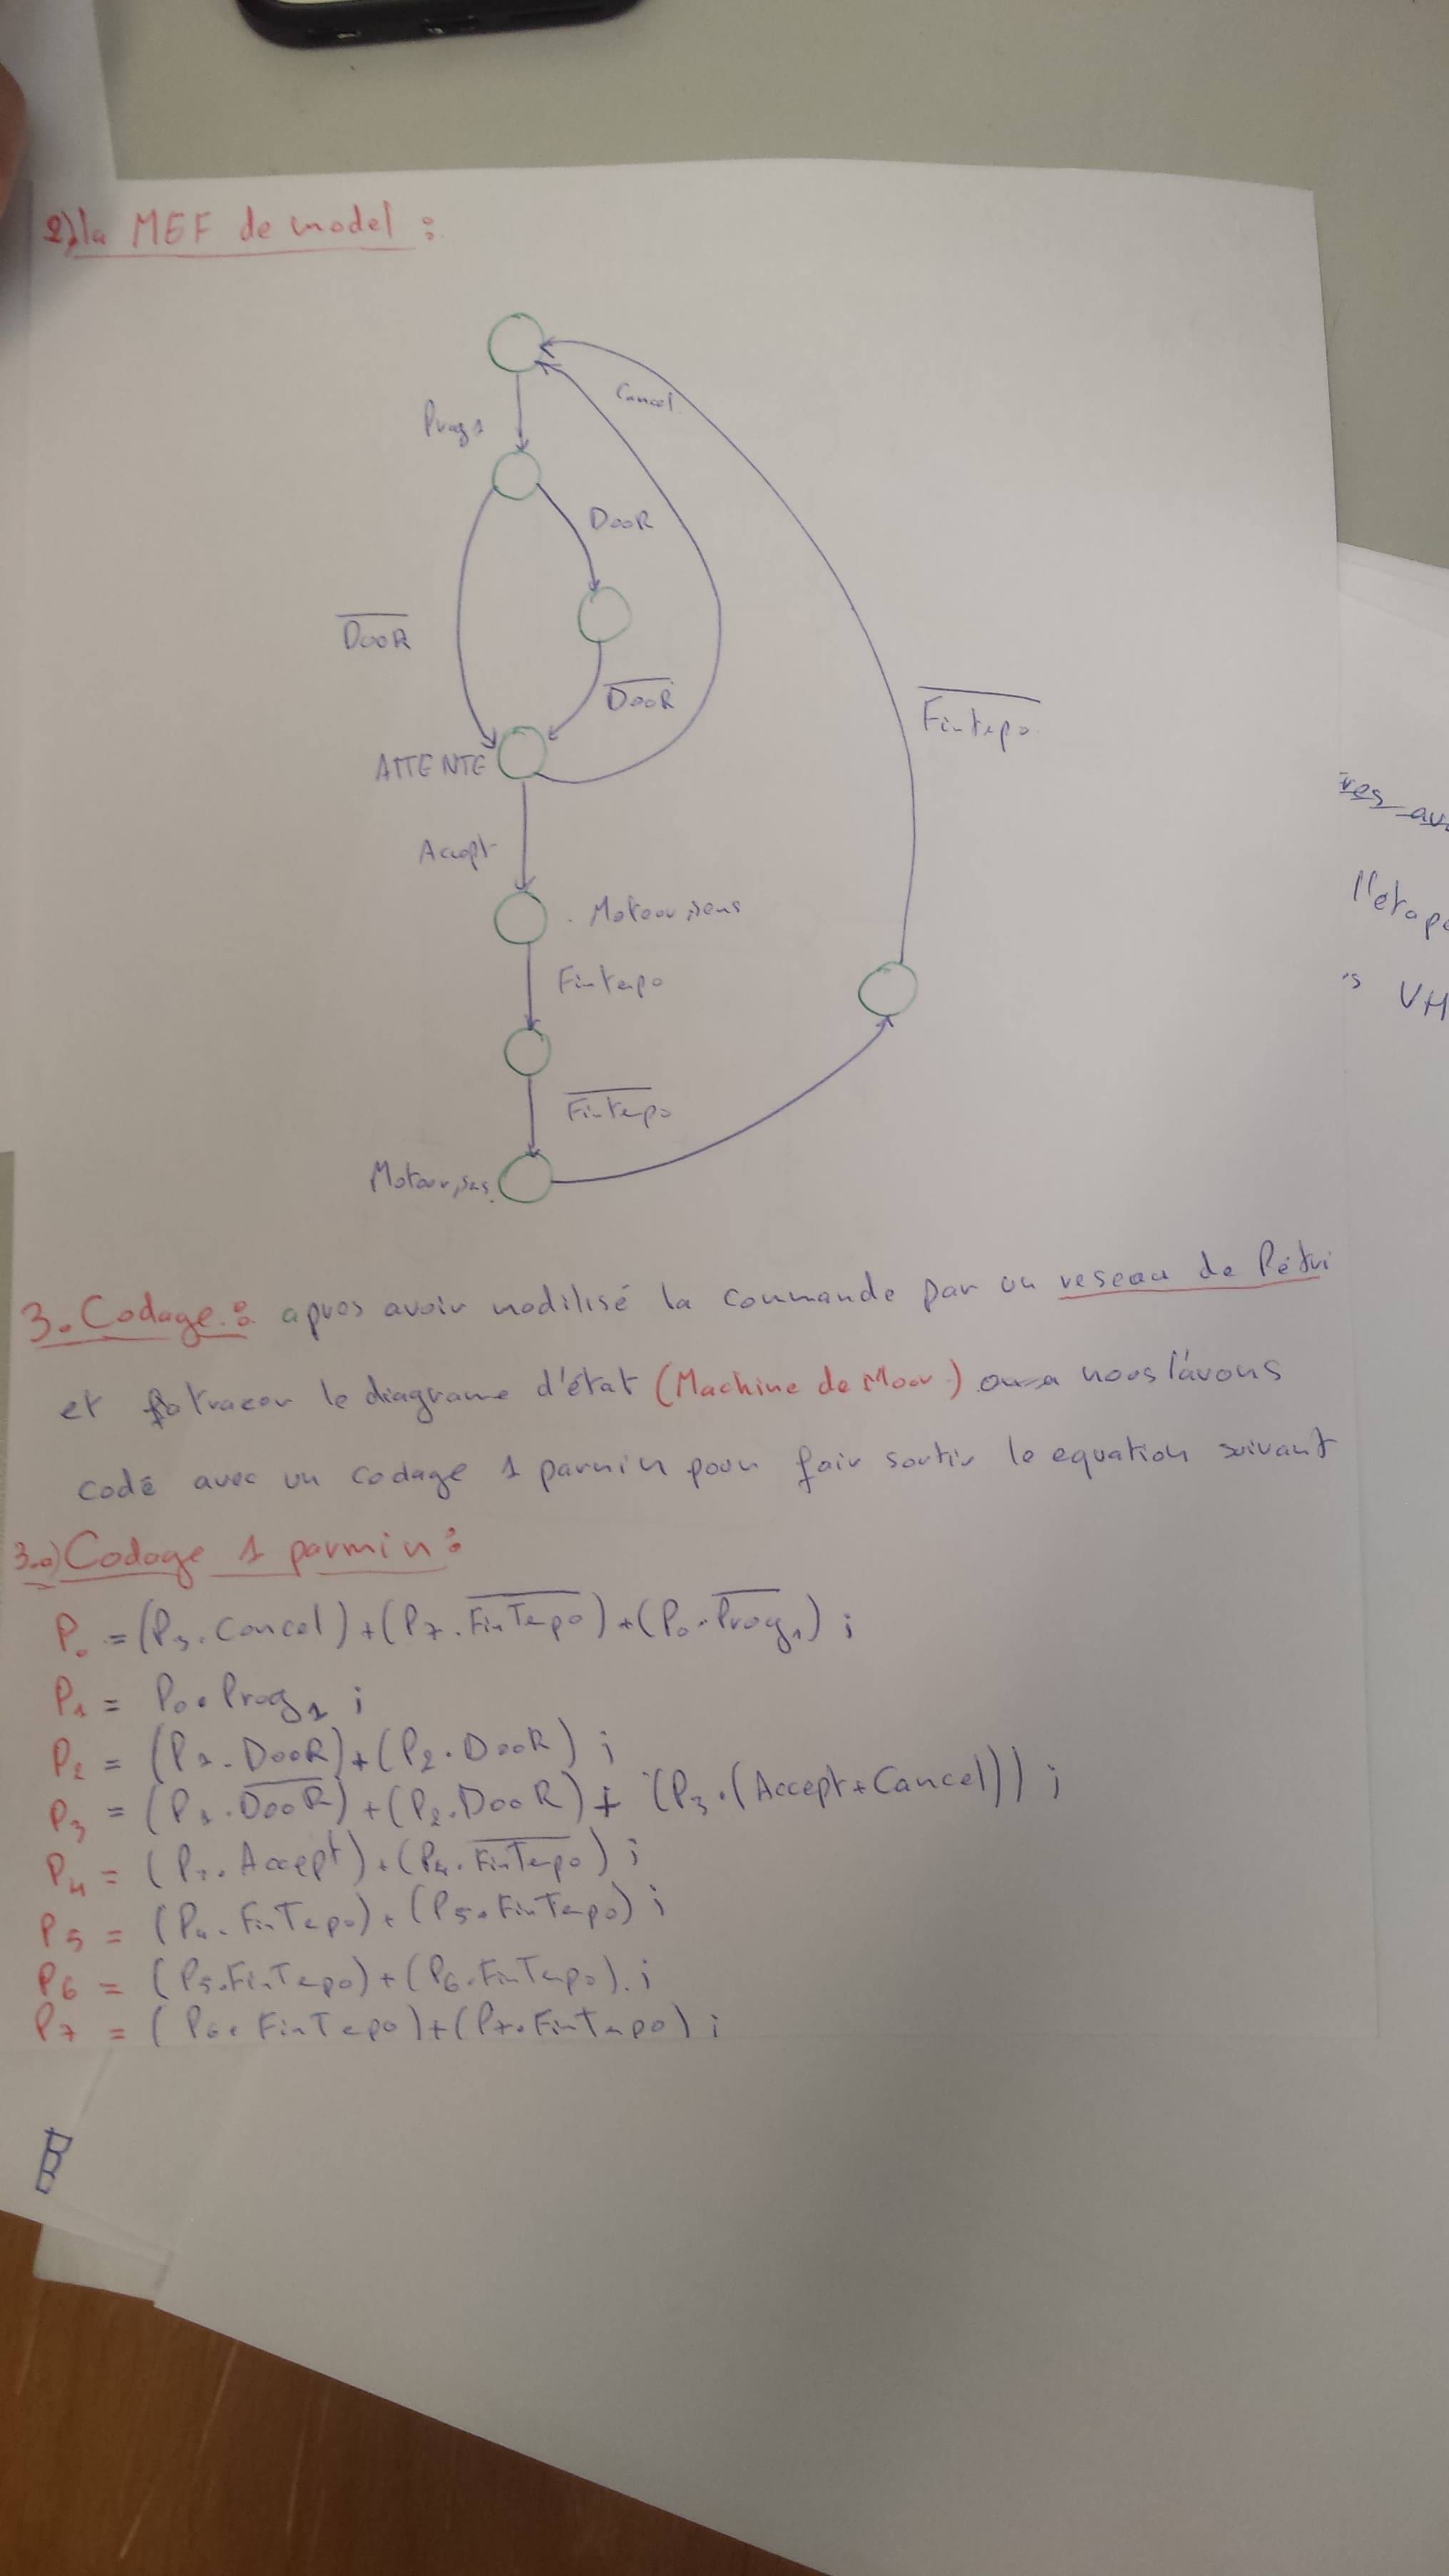 2) la MEF de model :
Cancel
Prog1
DooR
D̅o̅o̅R̅
D̅o̅o̅R̅
F̅i̅n̅t̅e̅p̅o̅
ATTENTE
Accept
Moteur,sens
Fintepo
F̅i̅n̅t̅e̅p̅o̅
Moteur,sas
3. Codage : apres avoir modilisé la commande par un reseau de Pétri
et tracer le diagrame d'état (Machine de Moor) nous l'avons
codé avec un codage 1 parmin pour fair sortir le equation suivant
3.a) Codage 1 parmin :
P0 = (P3.Cancel) + (P7.F̅i̅n̅T̅e̅p̅o̅) + (P0.P̅r̅o̅g̅1) ;
P1 = P0.Prog1 ;
P2 = (P1.DooR) + (P2.DooR) ;
P3 = (P1.D̅o̅o̅R̅) + (P2.DooR) + (P3.(Accept+Cancel)) ;
P4 = (P3.Accept) + (P4.F̅i̅n̅T̅e̅p̅o̅) ;
P5 = (P4.FinTepo) + (P5.FinTepo) ;
P6 = (P5.FinTepo) + (P6.FinTepo). ;
P7 = (P6.FinTepo) + (P7.FinTepo) ;
l'étape
VH